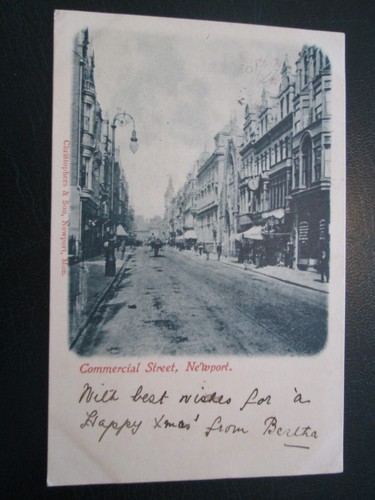 Christophers & Son, Newport, Mon.
Commercial Street, Newport.
With best wishes for 'a
Happy Xmas' from Bertha